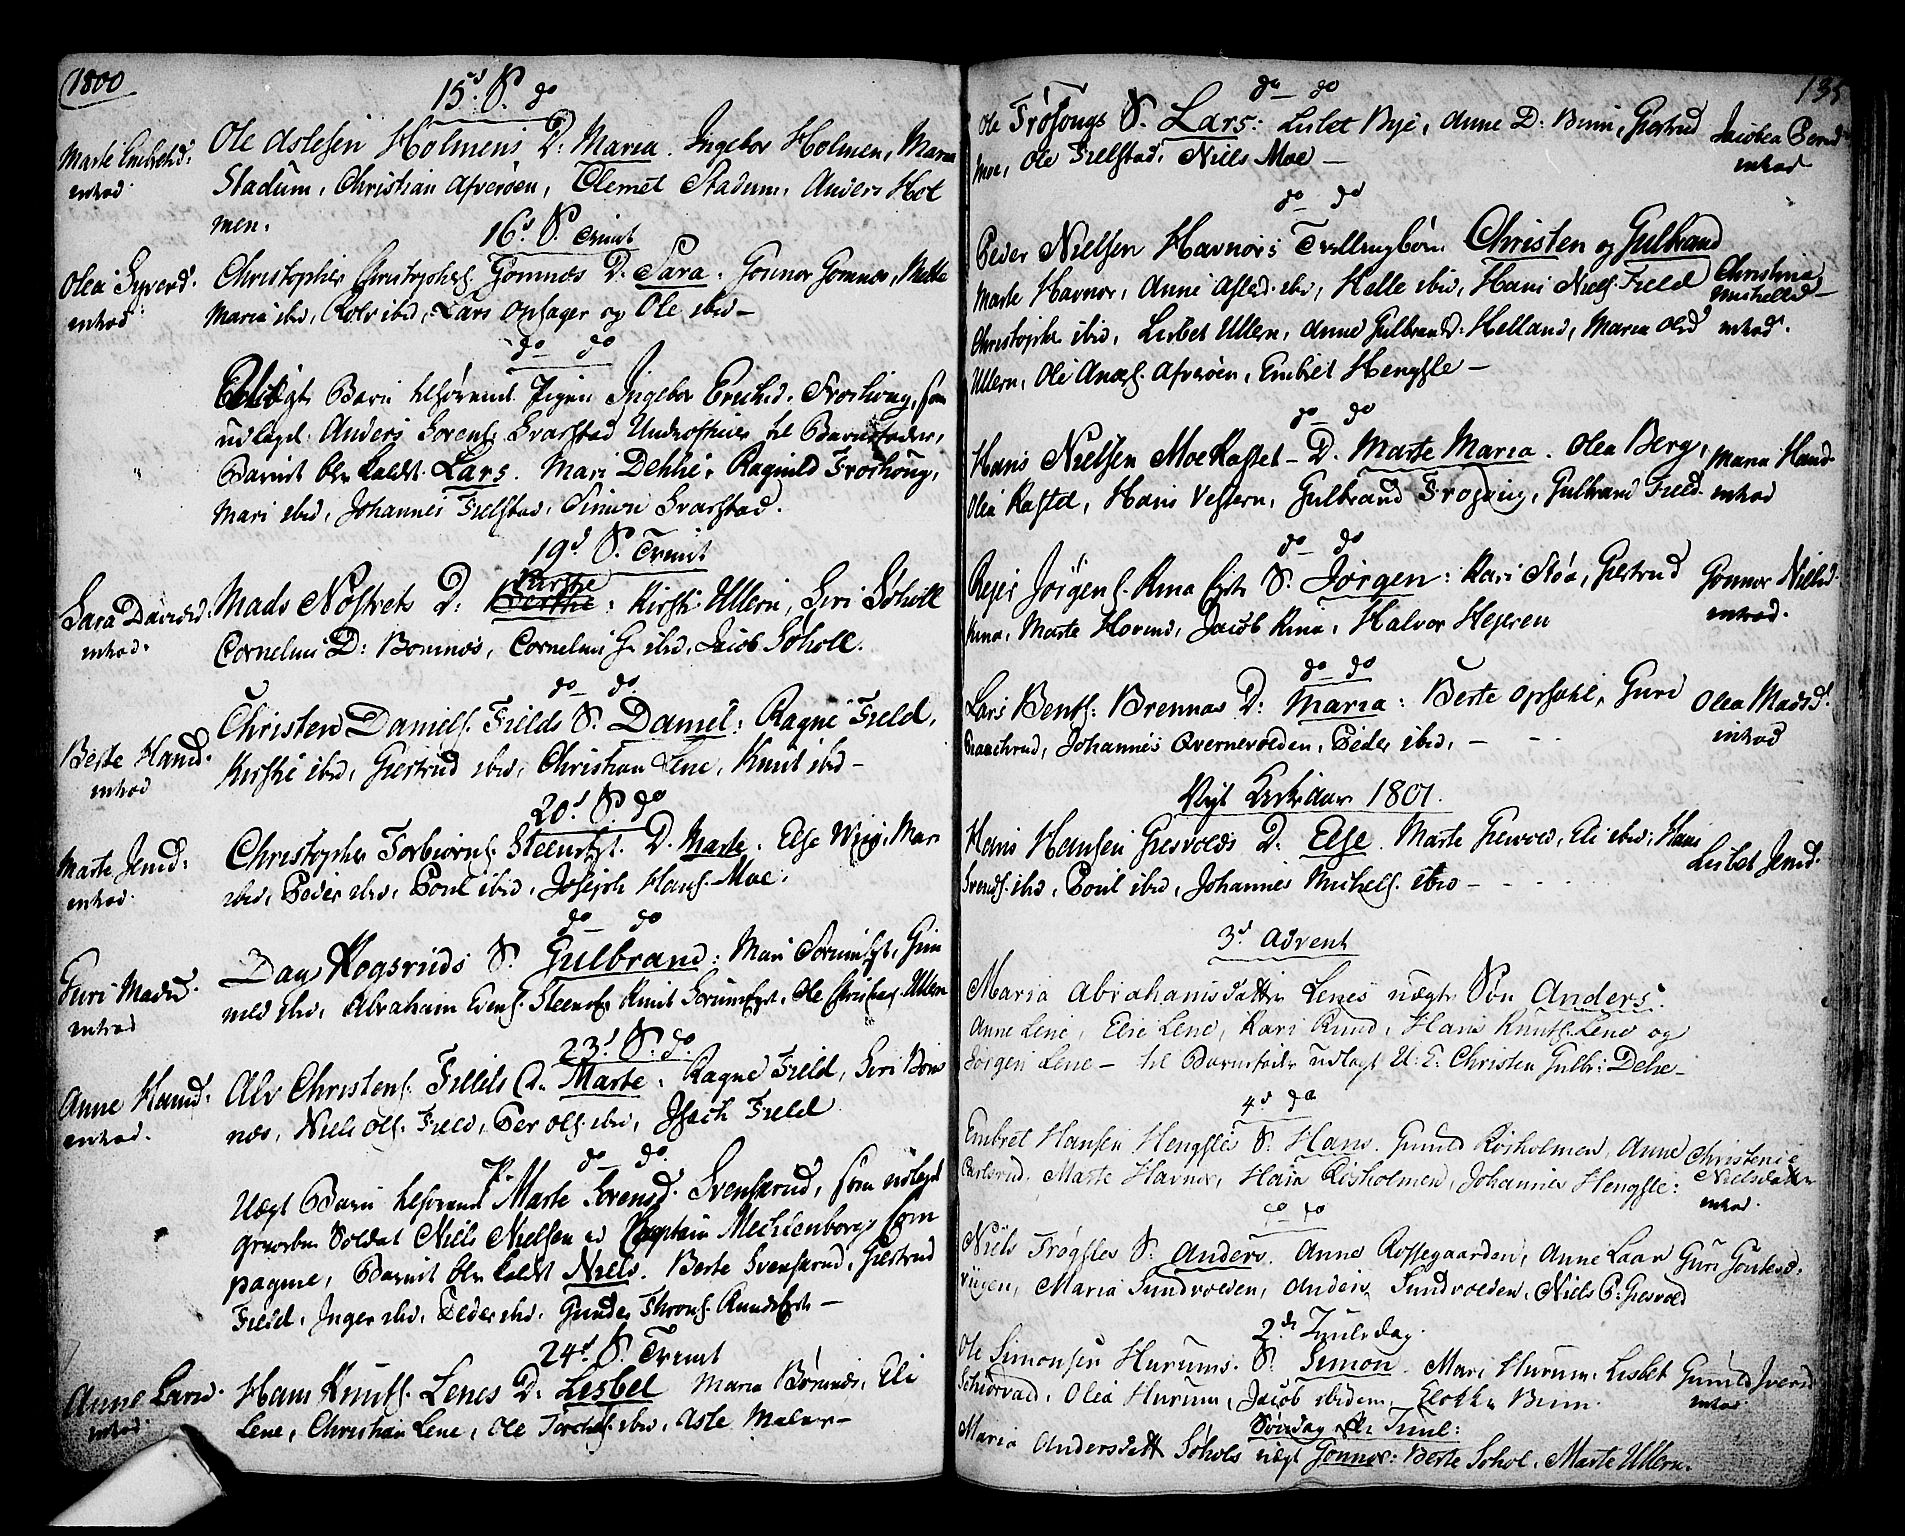 1800
15d S. do
Marte Embretsd. introd.
Ole Aslesen Holmens D. Maria. Ingebor Holmen, Maria
Stadum, Christian Afverøen, Clemet Stadum, Anders Hol
men.
16d S. Trinit
Olea Syversd. introd
Christopher Christophers. Gomnæs D. Sara. Gonnor Gomnæs, Mette
Maria ibid, Rolv ibid, Lars Opsager og Ole ibid
do do
Uægt Barn helføremt. Pigen Ingebor Erichsd. Froshoug, som
udlagd. Anders Sorens. Svarstad Underofficier til Barnefader,
Barnet blev kaldt Lars. Mari Dehli, Ragnild Froshoug,
Mari ibid, Johannes Fielstad, Simon Svarstad.
19d S. Trinit
Sara Davidsd. introd.
Mads Nøstrets D. Kirstie: Kirsti Ullern, Siri Søholt
Cornelius D: Bomnæs, Cornelius G. ibid, Jacob Søholt.
do do
Berte Hansd. introd
Christen Daniels. Fields S. Daniel: Ragne Field,
Kirstie ibid, Giertrud ibid, Christian Lene, Knut ibid
20d S. do
Marte Jensd: introd.
Christopher Torbiørns. Steens D. Marte. Else Wiig, Mari
ibid, Peder ibid, Poul ibid, Joseph Hans. Moe.
do do
Guri Madsd. introd
Dag Hogsruds S. Gulbrand: Mari Sorum, Gun
nild ibid, Abraham Evens. Steens Knut Sorum, Ole Ullern
23d S. do
Anne Hansd. introd.
Alv Christens. Fields D. Marte. Ragne Field, Siri Bom
næs, Niels Ols. Field, Per Ols. ibid, Isach Field
do do
Uægt Barn helføremt P. Marte Sorensd. Svensrud, som udlagd
gevorben Soldat Niels Nielsen ved Captain Mechlenborgs Com
pagnie, Barnet blev kaldt Niels. Berte Svensrud, Giertrud
Field, Inger ibid, Peder ibid, Gunder Throns.
24d S. Trinit
Anne Larsd. introd.
Hans Knuts. Lenes D. Lisbet Maria Børends, Eli
Lene, Christian Lene, Ole ibid, Aste Malar
135
do do
Ole Frøsougs S. Lars: Lisbet Bye, Anne D: Biun, Giertrud
Moe, Ole Fielstad, Niels Moe
introd
do do
Peder Nielsen Havnors Tvillingbørn Christen og Gulbrand
Marte Havnor, Anne ibid, Helle ibid, Hans Niels. Field
Christophe ibid, Lisbet Ullern, Anne Gulbran D: Helland, Maria Olsd
Ullern, Ole Anders. Afverøen, Embret Hengsle
Christina Michelsd introd.
do do
Hans Nielsen Moe Rastet D. Marte Maria. Olea Berg,
Olea Rasted, Hans Vestern, Gulbrand Frøsoug, Gulbrand Field.
Maria Hansd introd
do do
Reier Jørgens. Rena S. Jørgen: Kari Støa, Giertrud
Rena, Marte Hovind, Jacob Rena, Halvor Hejeren
Gonnor Nielsd. introd.
do do
Lars Bents: Brennas D: Maria: Berte Opsahl, Guri
Johannes Qvernevolden, Peder ibid,
Olea Madsd. introd
Nyt Kirkeaar 1801.
Hans Hansen Giesvolds D. Else. Marte Giesvold, Eli ibid, Hans
Svends. ibid, Poul ibid, Johannes Michels. ibid
Lisbet Jensd.
3d Advent
Maria Abrahamsdatter Lenes uægte Søn Anders.
Anne Lene, Elie Lene, Kari Rund, Hans Knuts. Lene og
Jørgen Lene til Barnefader udlagt U: E: Christen Gulbr: Dehle
4d do
Embret Hansen Hengsles S. Hans. Gunild Risholmen, Anne
Carlsrud, Marte Havnor, Hans Risholmen, Johannes Hengsle:
Christence Nielsdatter introd.
do do
Niels Frøgsles S. Anders. Anne Rossegaarden, Anne Laar
vigen, Maria Sundvolden, Anders Sundvolden, Niels P. Giesvold
Guri
2den Juuledag
Ole Simonsen Hurums S. Simon. Mari Hurum, Lisbet
Schiørvad, Olea Hurum, Jacob ibidem
Gunild Iversd introd.
Søndag Juul:
Maria Andersdatt Søhols uægt Gonnor: Berte Sohol, Marte Ullern.